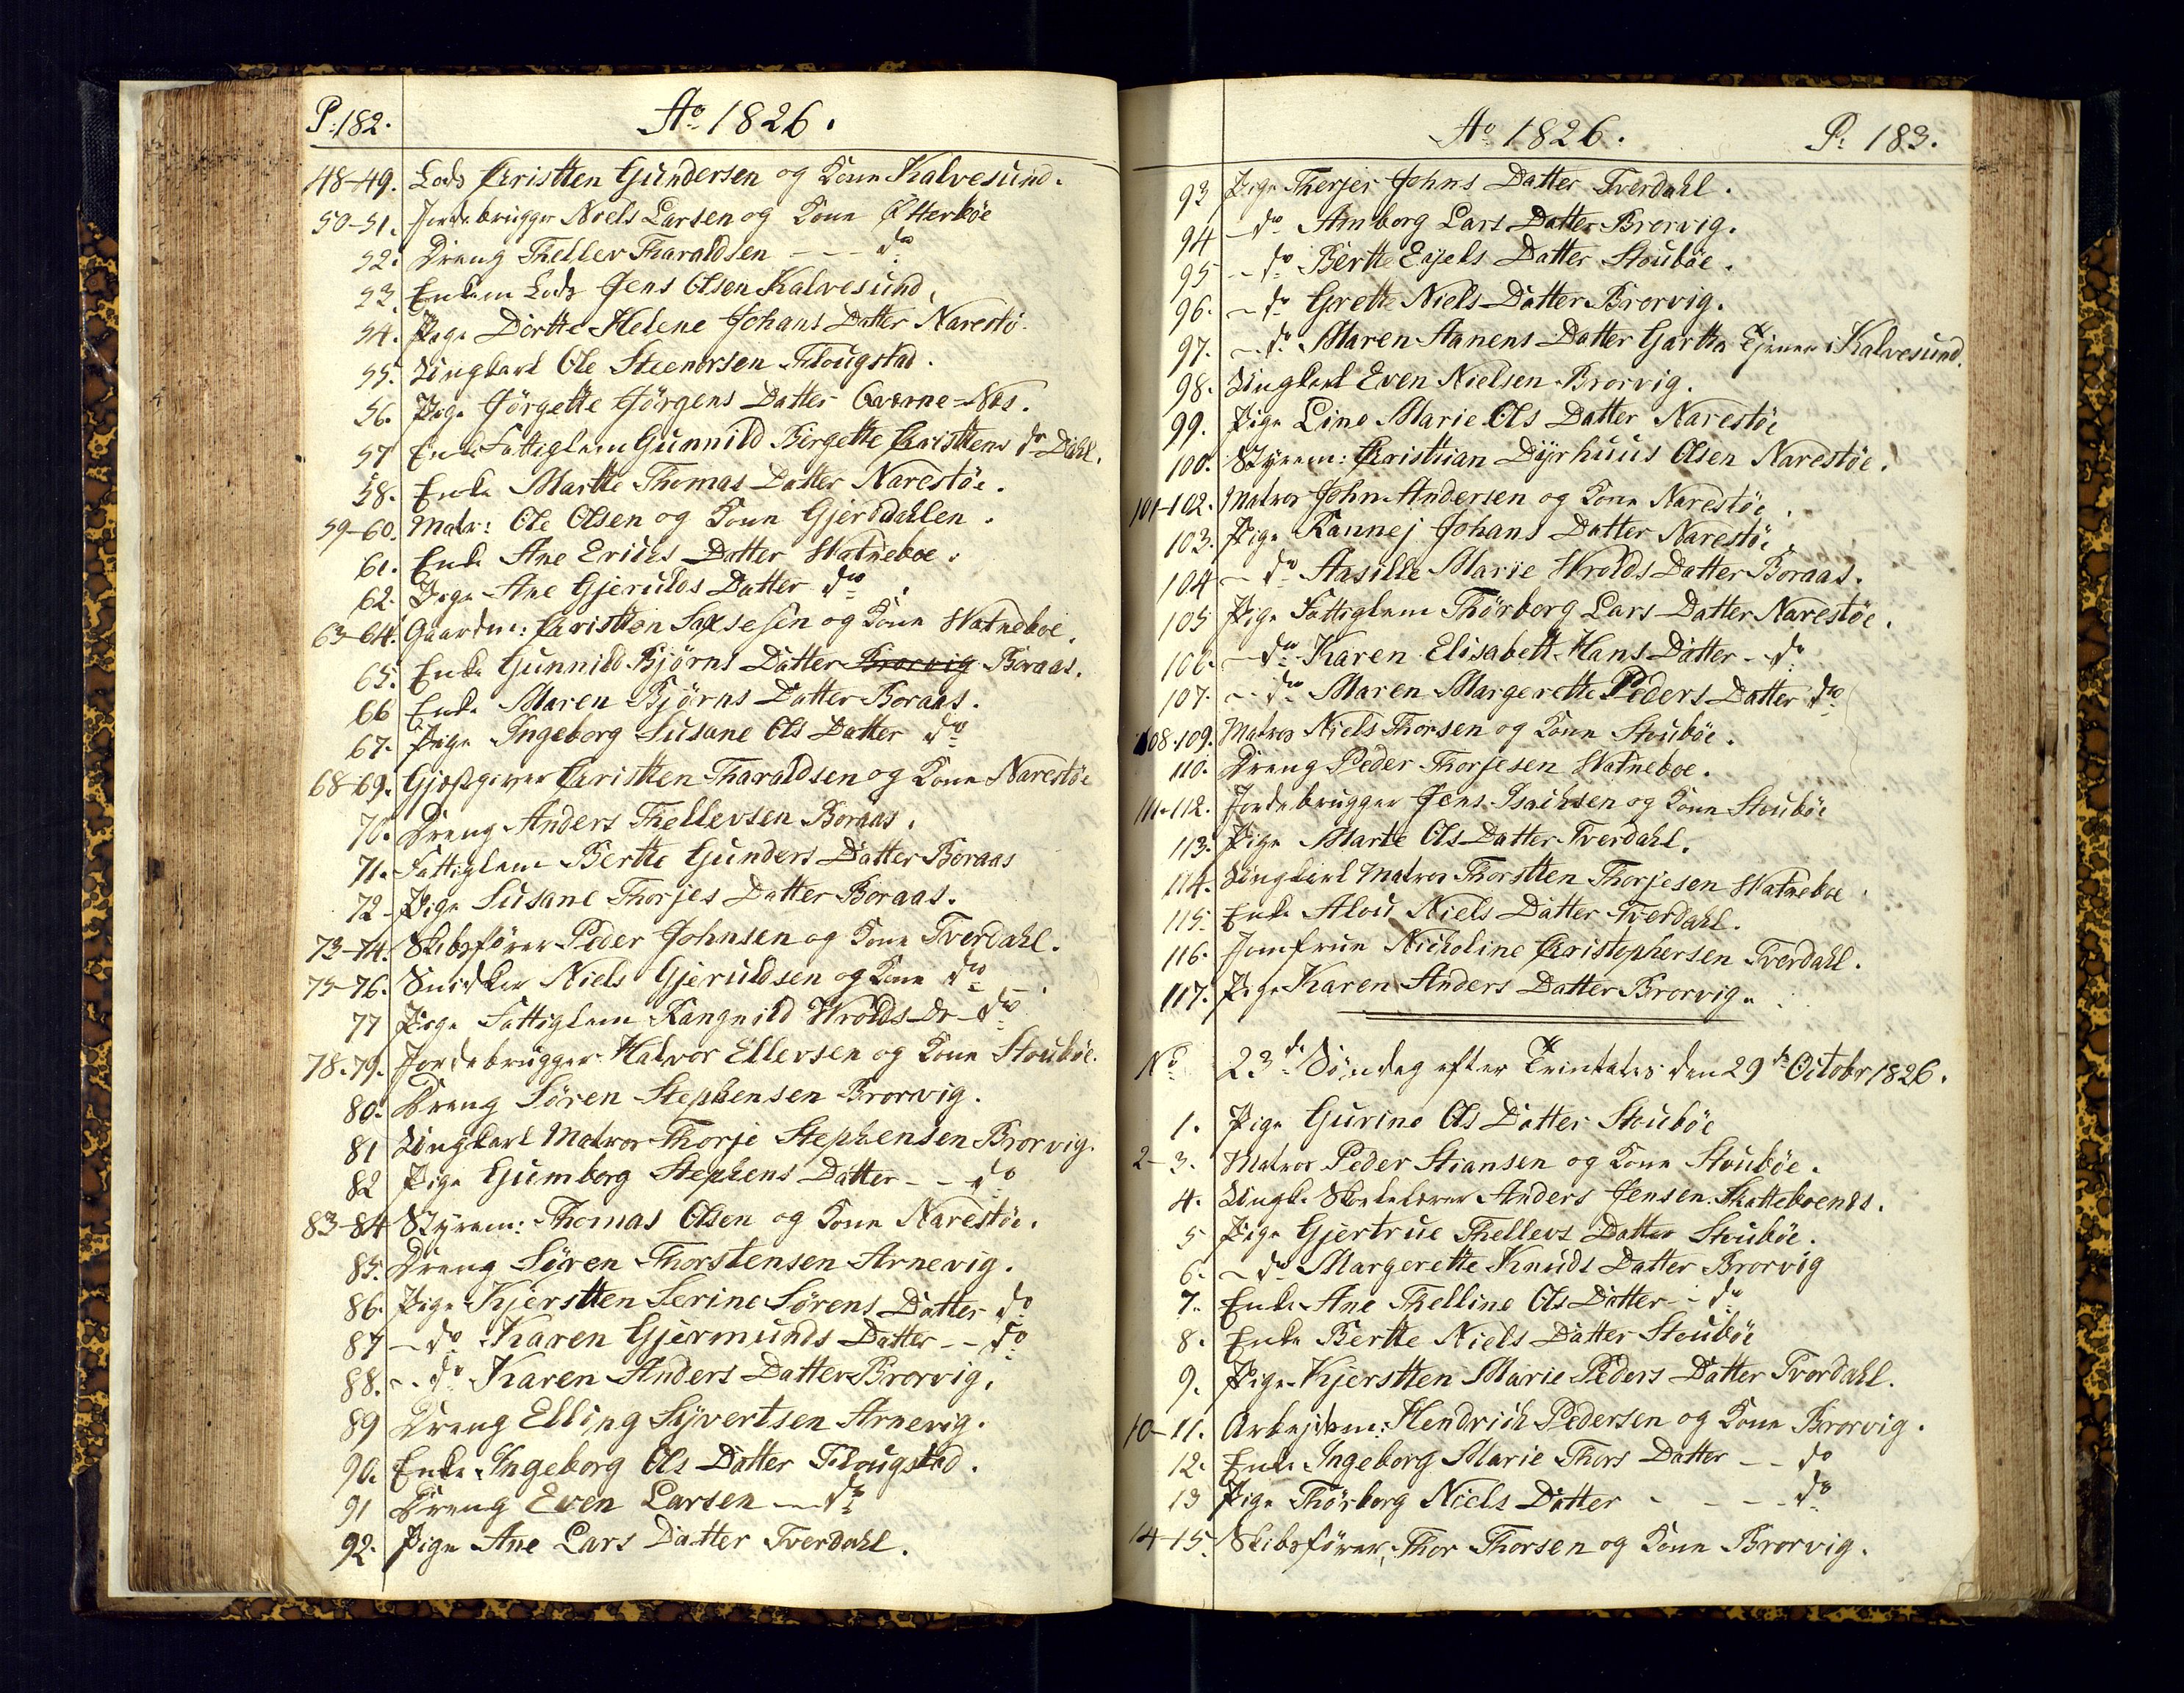 P: 182.
Ao 1826.
48-49. Lods Christten Gundersen og Kone Kalvesund.
50-51. Jordebrugger Niels Larsen og Kone Øtterböe
52. Dreng Thellev Tharaldsen - - - do
53. Enkem Lods Jens Olsen Kalvesund.
54. Pige Dortte Helene Johans Datter Narestö.
55. Ungkarl Ole Steenersen Flougstad.
56. Pige Jörgette Jörgens Datter Qverne-Næs.
57 Enke Fattiglem Gunnild Birgette Christtens dr Dahl.
58. Enke Martte Thomas Datter Narestöe.
59-60. Matr: Ole Olsen og Kone Gjerddahlen.
61. Enke Ane Erichs Datter Watneboe.
62. Pige Ane Gjerulds Datter do.
63-64. Gaardm: Christten Saxsesen og Kone Watneboe.
65. Enke Gunnild Bjørns Datter Brorvig Boraas.
66 Enke Maren Bjørns Datter Boraas.
67. Pige Ingeborg Susane Ols Datter do
68-69. Gjestgiver Christten Tharaldsen og Kone Narestöe
70. Dreng Anders Thellevsen Boraas.
71. Fattiglem Bertte Gunders Datter Boraas
72 Pige Susane Thorjes Datter Boraas.
73-74. Skibsfører Peder Johnsen og Kone Tverdahl.
75-76. Snidker Niels Gjeruldsen og Kone do
77 Pige Fattiglem Rangnild Wrolds Dr - do
78-79. Jordebrugger Halvor Ellevsen og Kone Stoubøe.
80. Dreng Sören Stephensen Brorvig.
81 Ungkarl Matros Thorje Stephensen Brorvig.
82 Pige Gumborg Stephens Datter - - do
83-84 Styrem: Thomas Olsen og Kone Narestöe.
85. Dreng Sören Thorstensen Arnevig.
86. Pige Kjerstten Serine Sörens Datter do
87 - do Karen Gjermunds Datter - - do
88. - do Karen Anders Datter Brorvig.
89 Dreng Elling Syvertsen Arnevig.
90. Enke Ingeborg Ols Datter Flougstad.
91 Dreng Even Larsen - - do
92. Pige Ane Lars Datter Tverdahl.
Ao 1826. P: 183.
93 Pige Therjer Johns Datter Tverdahl.
94 - do Amborg Lars Datter Brorvig.
95 - do Bertte Eyels Datter Stoubøe.
96. - do Grette Niels Datter Brorvig.
97. - do Maren Aanens Datter Gartta Tjener i Kalvesund.
98. Ungkarl Even Nielsen Brorvig.
99. Pige Line Marie Ols Datter Narestöe
100. Styrem: Christian Dyrhuus Olsen Narestöe.
101-102. Matros John Andersen og Kone Narestöe.
103. Pige Rannej Johans Datter Narestöe
104 - do Aasille Marie Wrolds Datter Boraas.
105 Pige Fattiglem Thörborg Lars Datter Narestöe.
106. - do Karen Elisabett Hans Datter - do
107. - do Maren Margerette Peders Datter do
108-109. Matros Niels Thorsen og Kone Stoubøe.
110. Dreng Peder Thorjesen Watneboe.
111-112. Jordebrugger Jens Isachsen og Kone Stoubøe
113. Pige Marte Ols Datter Tverdahl.
114. Ungkarl Matros Thorstten Thorjesen Watneboe
115. Enke Alou Niels Datter Tverdahl.
116. Jomfrue Nicholine Christophersen Tverdahl.
117. Pige Karen Anders Datter Brorvig.
No 23de Søndag efter Trinitatis den 29de Octobr 1826.
1. Pige Gurine Ols Datter Stoubøe
2-3. Matros Peder Stiansen og Kone Stoubøe.
4. Ungk. Skolelærer Anders Jensen Skatteboends.
5 Pige Gjertrue Thellevs Datter Stoubøe.
6. - do Margerette Knuds Datter Brorvig
7. Enke Ane Thelline Ols Datter - do
8. Enke Bertte Niels Datter Stoubøe
9. Pige Kjerstten Marie Peders Datter Tverdahl.
10-11. Arbejdsm: Hendrich Pedersen og Kone Brorvig.
12. Enke Ingeborg Marie Thors Datter - - do
13 Pige Thörborg Niels Datter - - - - do
14-15. Skibsfører Thor Thorsen og Kone Brorvig.